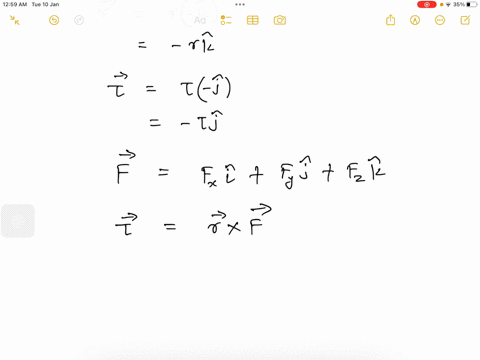 12:59 AM Tue 10 Jan
35%
Aa
= -r k̂
τ⃗ = τ(-ĵ)
= -τĵ
F⃗ = Fₓ î + Fᵧ ĵ + F_z k̂
τ⃗ = r⃗ × F⃗